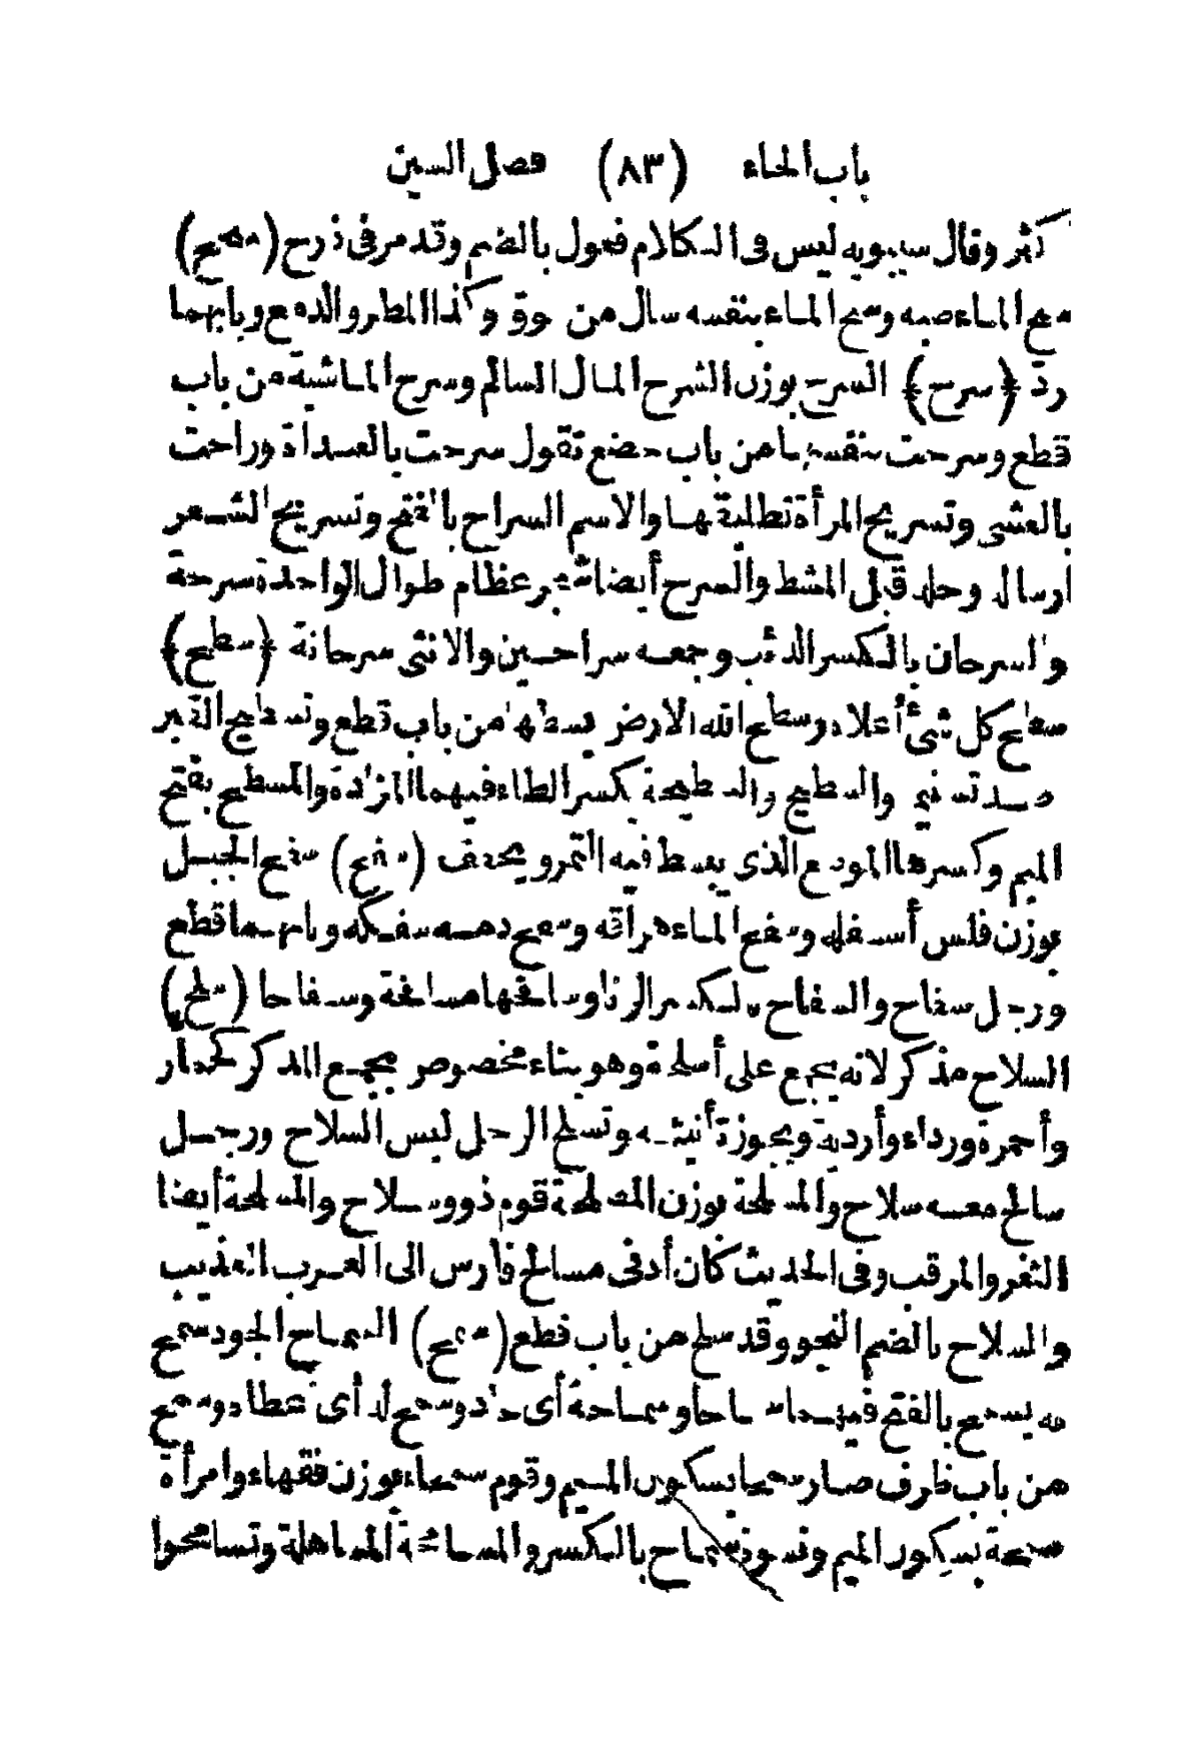 باب الحاء (٨٣) فصل السين
كثر وقال سيبويه ليس في الكلام فعول بالضم وقد مر في ذرح (سحح)
سح الماء صبه وسح الماء بنفسه سال من فوق وكذا المطر والدمع وبابهما
ردّ ﴿سرح﴾ السرح بوزن الشرح المال السائم وسرح الماشية من باب
قطع وسرحت بنفسها من باب خضع تقول سرحت بالغداة وراحت
بالعشى وتسريح المرأة تطليقها والاسم السراح بالفتح وتسريح الشعر
ارساله وحله قبل المشط والسرح أيضا شجر عظام طوال الواحدة سرحة
والسرحان بالكسر الذئب وجمعه سراحين والانثى سرحانة ﴿سطح﴾
سطح كل شئ أعلاه وسطح الله الارض بسطها من باب قطع وتسطيح القبر
ضد تسنيمه والسطيح والسطيحة بكسر الطاء فيهما المزادة والمسطح بفتح
الميم وكسرها الموضع الذى يبسط فيه التمر ويجفف (سفح) سفح الجبل
بوزن فلس أسفله وسفح الماء هراقه وسفح دمه سفكه وبابهما قطع
ورجل سفاح والسفاح بالكسر الزنا وسافحها مسافحة وسفاحا (سلح)
السلاح مذكر لانه يجمع على أسلحة وهو بناء مخصوص بجمع المذكر كحمار
وأحمرة ورداء وأردية ويجوز تأنيثه وتسلح الرجل لبس السلاح ورجل
سالح معه سلاح والمسلحة بوزن المصلحة قوم ذوو سلاح والمسلحة أيضا
الثغر والمرقب وفى الحديث كان أدنى مسالح فارس الى العرب العذيب
والسلاح بالضم النجو وقد سلح من باب قطع (سمح) السماح الجود سمح
به يسمح بالفتح فيهما سماحا وسماحة أى جاد وسمح له أى أعطاه وسمح
من باب ظرف صار سمحا بسكون الميم وقوم سمحاء بوزن فقهاء وامرأة
سمحة بسكون الميم ونسوة سماح بالكسر والمسامحة المساهلة وتسامحوا